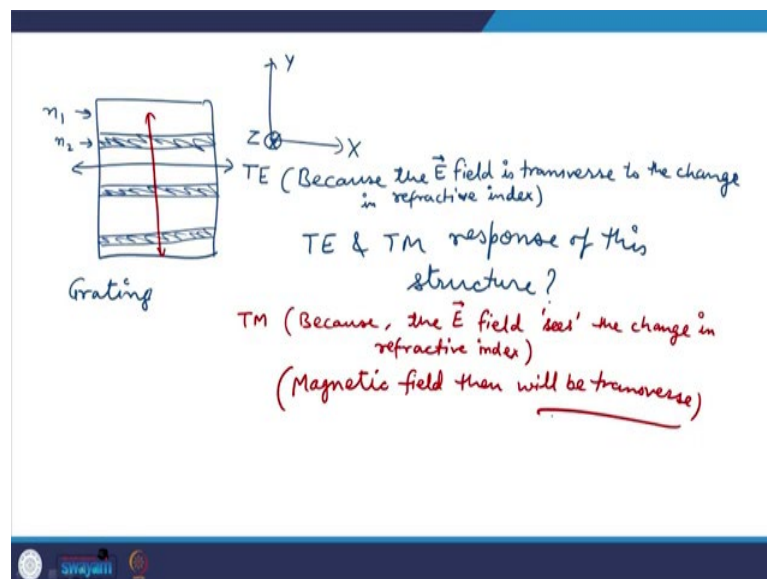 Y
n₁ →
n₂ →
Z
X
TE (Because the E⃗ field is transverse to the change
in refractive index)
TE & TM response of this
structure?
Grating
TM (Because, the E⃗ field 'sees' the change in
refractive index)
(Magnetic field then will be transverse)
swayam